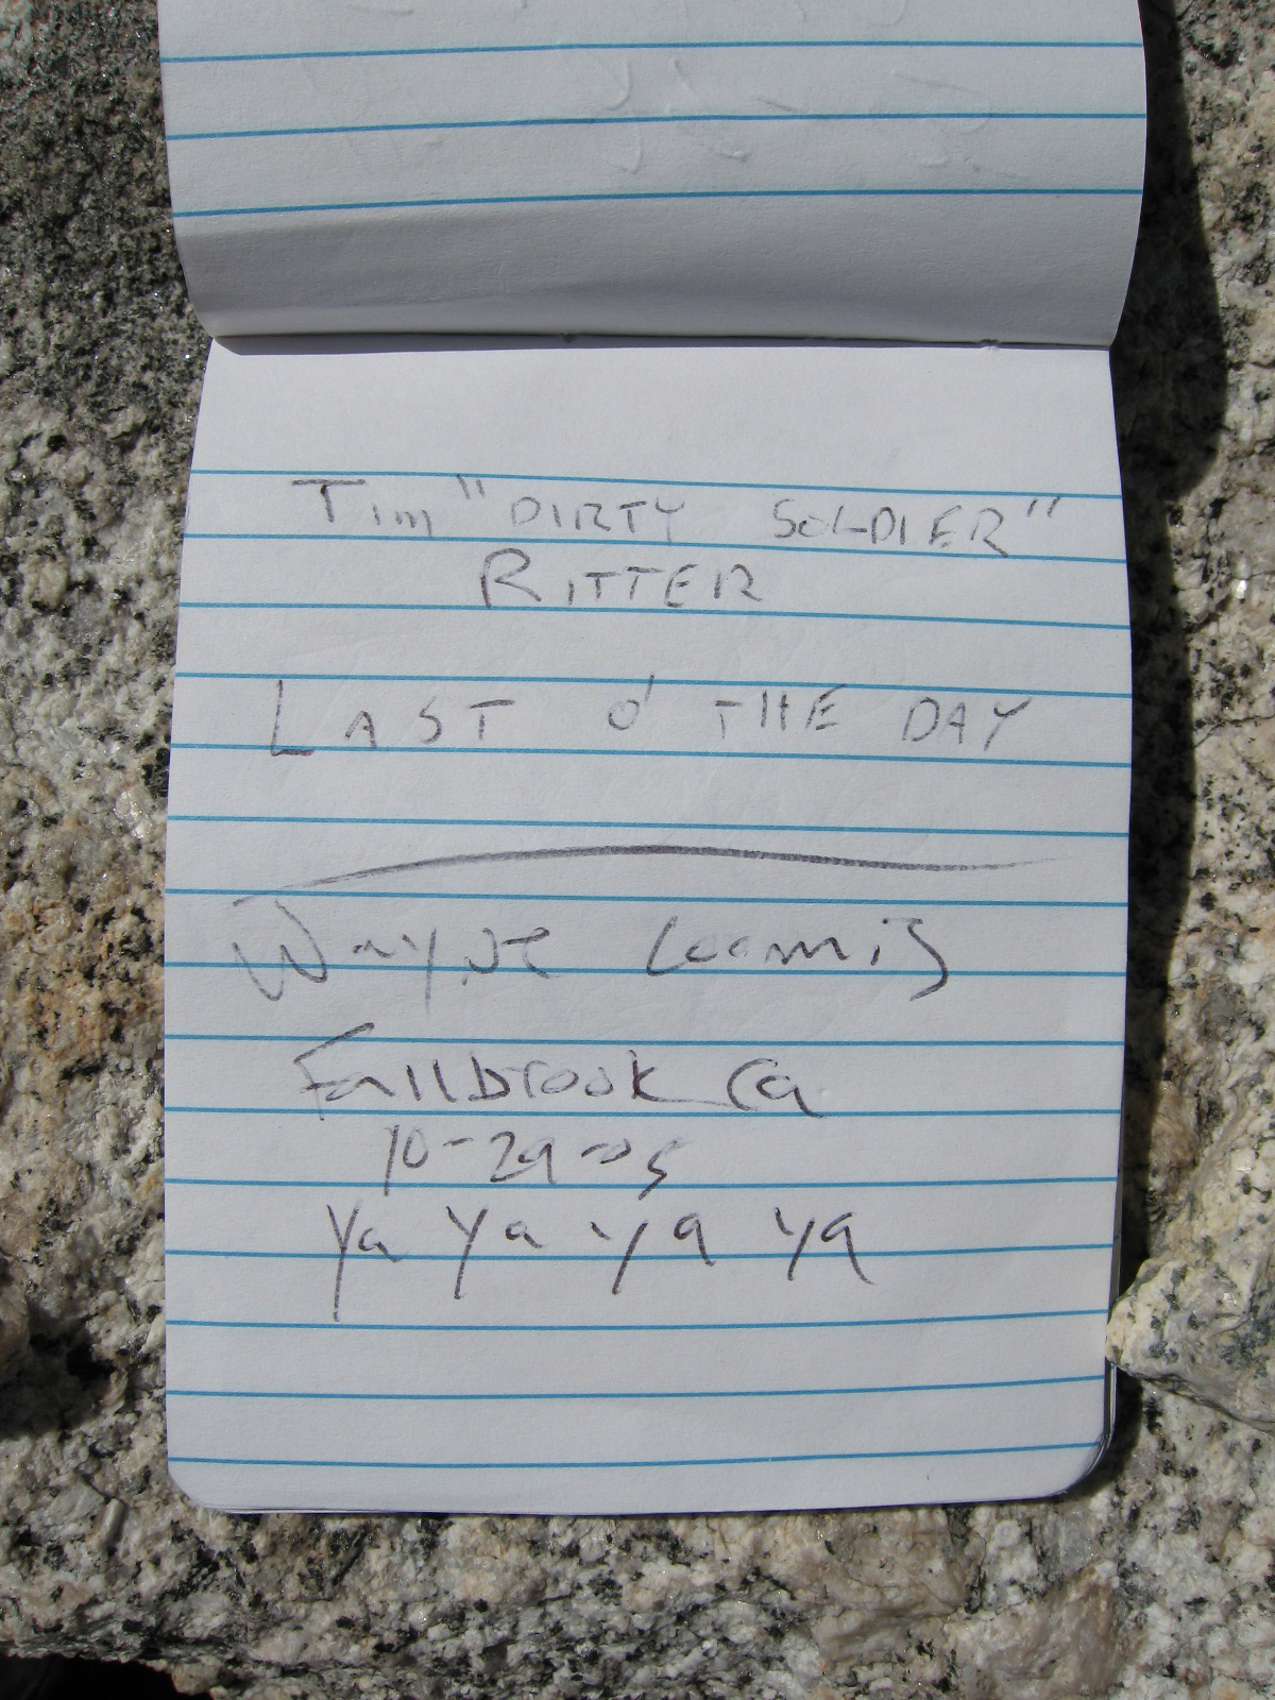 Tim "DIRTY SOLDIER"
RITTER
LAST O' THE DAY
Wayne Loomis
Fallbrook Ca
10-29-05
Ya Ya Ya Ya